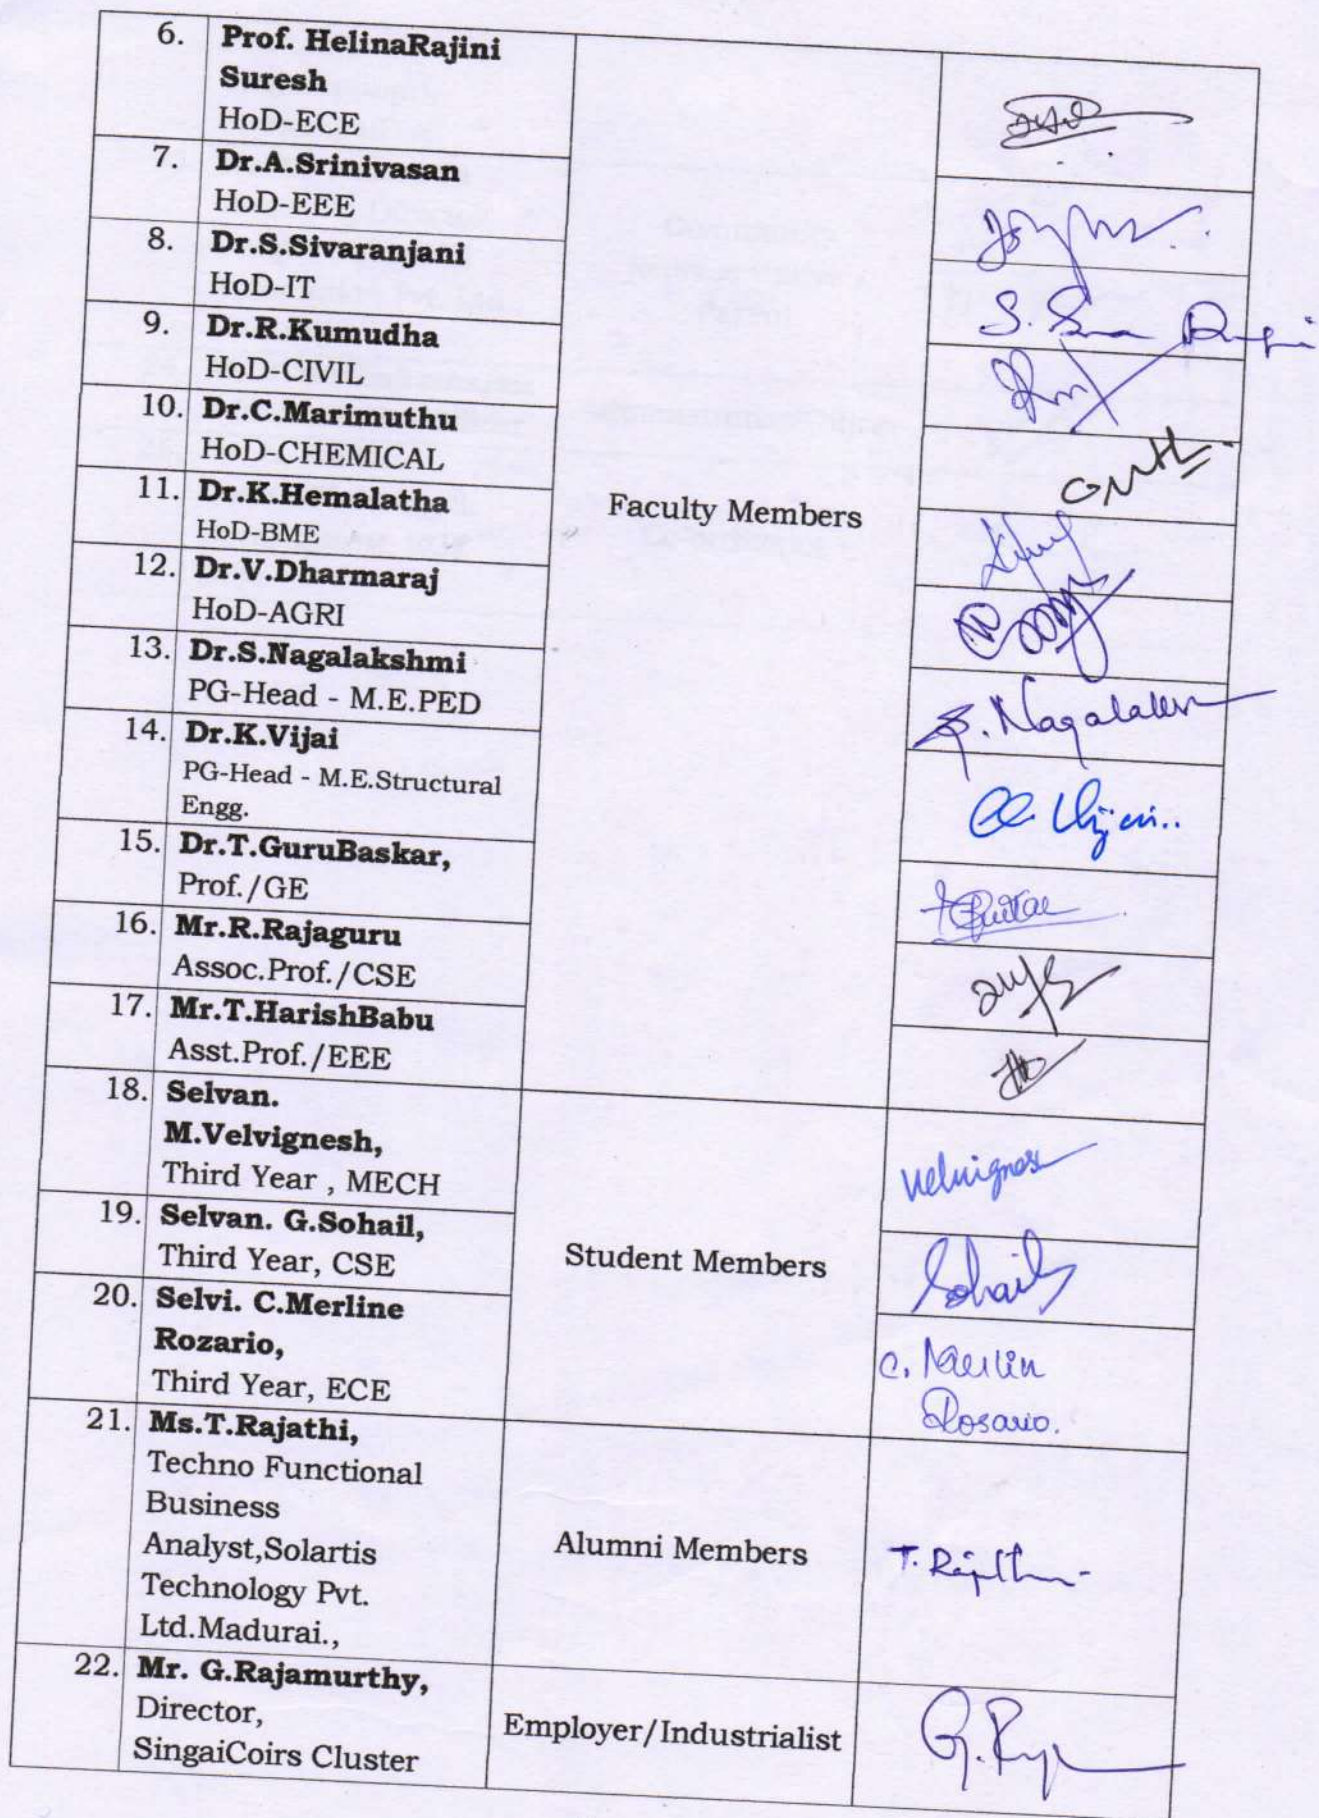 6. Prof. HelinaRajini
Suresh
HoD-ECE
7. Dr.A.Srinivasan
HoD-EEE
8. Dr.S.Sivaranjani
HoD-IT
S.
9. Dr.R.Kumudha
HoD-CIVIL
10. Dr.C.Marimuthu
HoD-CHEMICAL
11. Dr.K.Hemalatha
HoD-BME
Faculty Members
12. Dr.V.Dharmaraj
HoD-AGRI
13. Dr.S.Nagalakshmi
PG-Head - M.E.PED
14. Dr.K.Vijai
PG-Head - M.E.Structural
Engg.
15. Dr.T.GuruBaskar,
Prof./GE
16. Mr.R.Rajaguru
Assoc.Prof./CSE
17. Mr.T.HarishBabu
Asst.Prof./EEE
18. Selvan.
M.Velvignesh,
Third Year , MECH
19. Selvan. G.Sohail,
Third Year, CSE
Student Members
Sohail
20. Selvi. C.Merline
Rozario,
Third Year, ECE
C. Merlin
Rosario.
21. Ms.T.Rajathi,
Techno Functional
Business
Analyst,Solartis
Technology Pvt.
Ltd.Madurai.,
Alumni Members
22. Mr. G.Rajamurthy,
Director,
SingaiCoirs Cluster
Employer/Industrialist